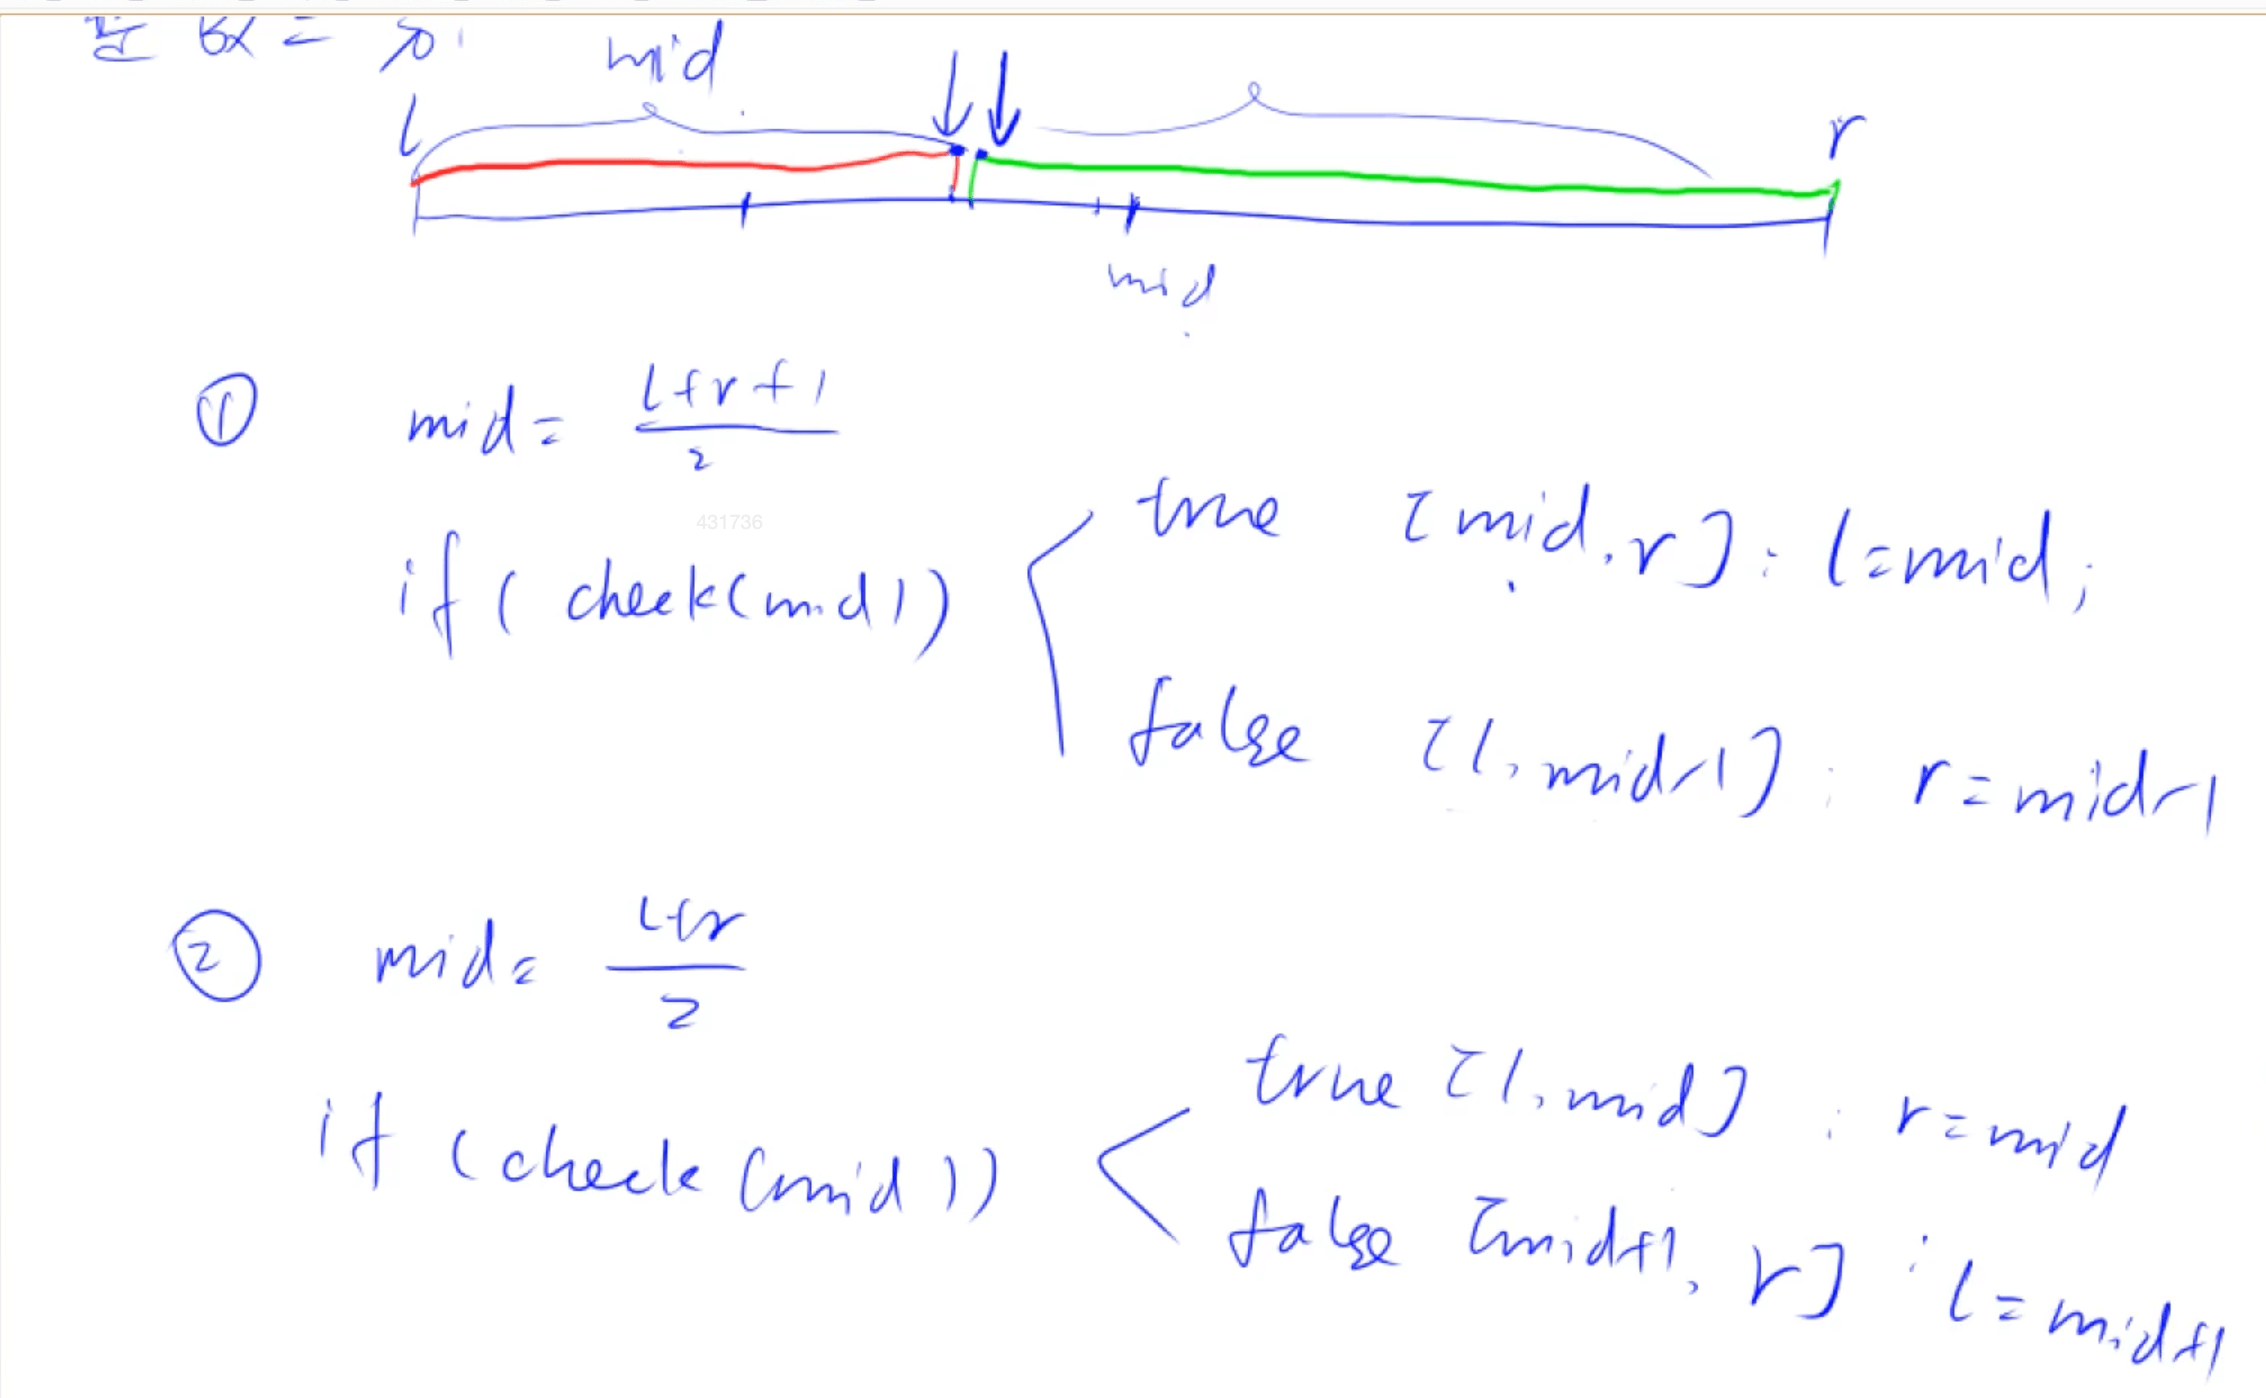 mid
l r
mid
① mid = (l+r+1)/2
431736
if ( check(mid)) true [mid, r] : l=mid;
false [l, mid-1] : r=mid-1
② mid = (l+r)/2
if (check (mid)) true [l, mid] : r=mid
false [mid+1, r] : l=mid+1